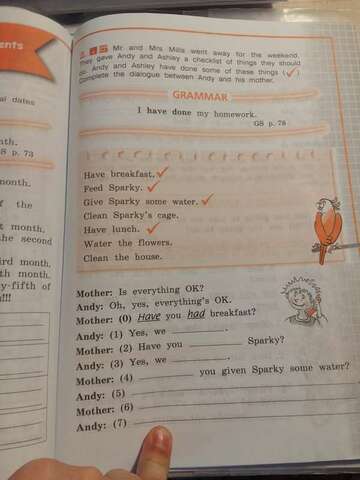 ents
al dates
nth.
S p. 73
month.
f the
t month.
the second
ird month.
th month.
y-fifth of
h!!!
Mr and Mrs Mills went away for the weekend.
They gave Andy and Ashley a checklist of things they should
do. Andy and Ashley have done some of these things (✓)
Complete the dialogue between Andy and his mother.
GRAMMAR
I have done my homework.
GS p. 78
Have breakfast. ✓
Feed Sparky. ✓
Give Sparky some water. ✓
Clean Sparky's cage.
Have lunch. ✓
Water the flowers.
Clean the house.
Mother: Is everything OK?
Andy: Oh, yes, everything's OK.
Mother: (0) Have you had breakfast?
Andy: (1) Yes, we ________.
Mother: (2) Have you ________ Sparky?
Andy: (3) Yes, we ________.
Mother: (4) ________ you given Sparky some water?
Andy: (5) ________
Mother: (6) ________
Andy: (7) ________